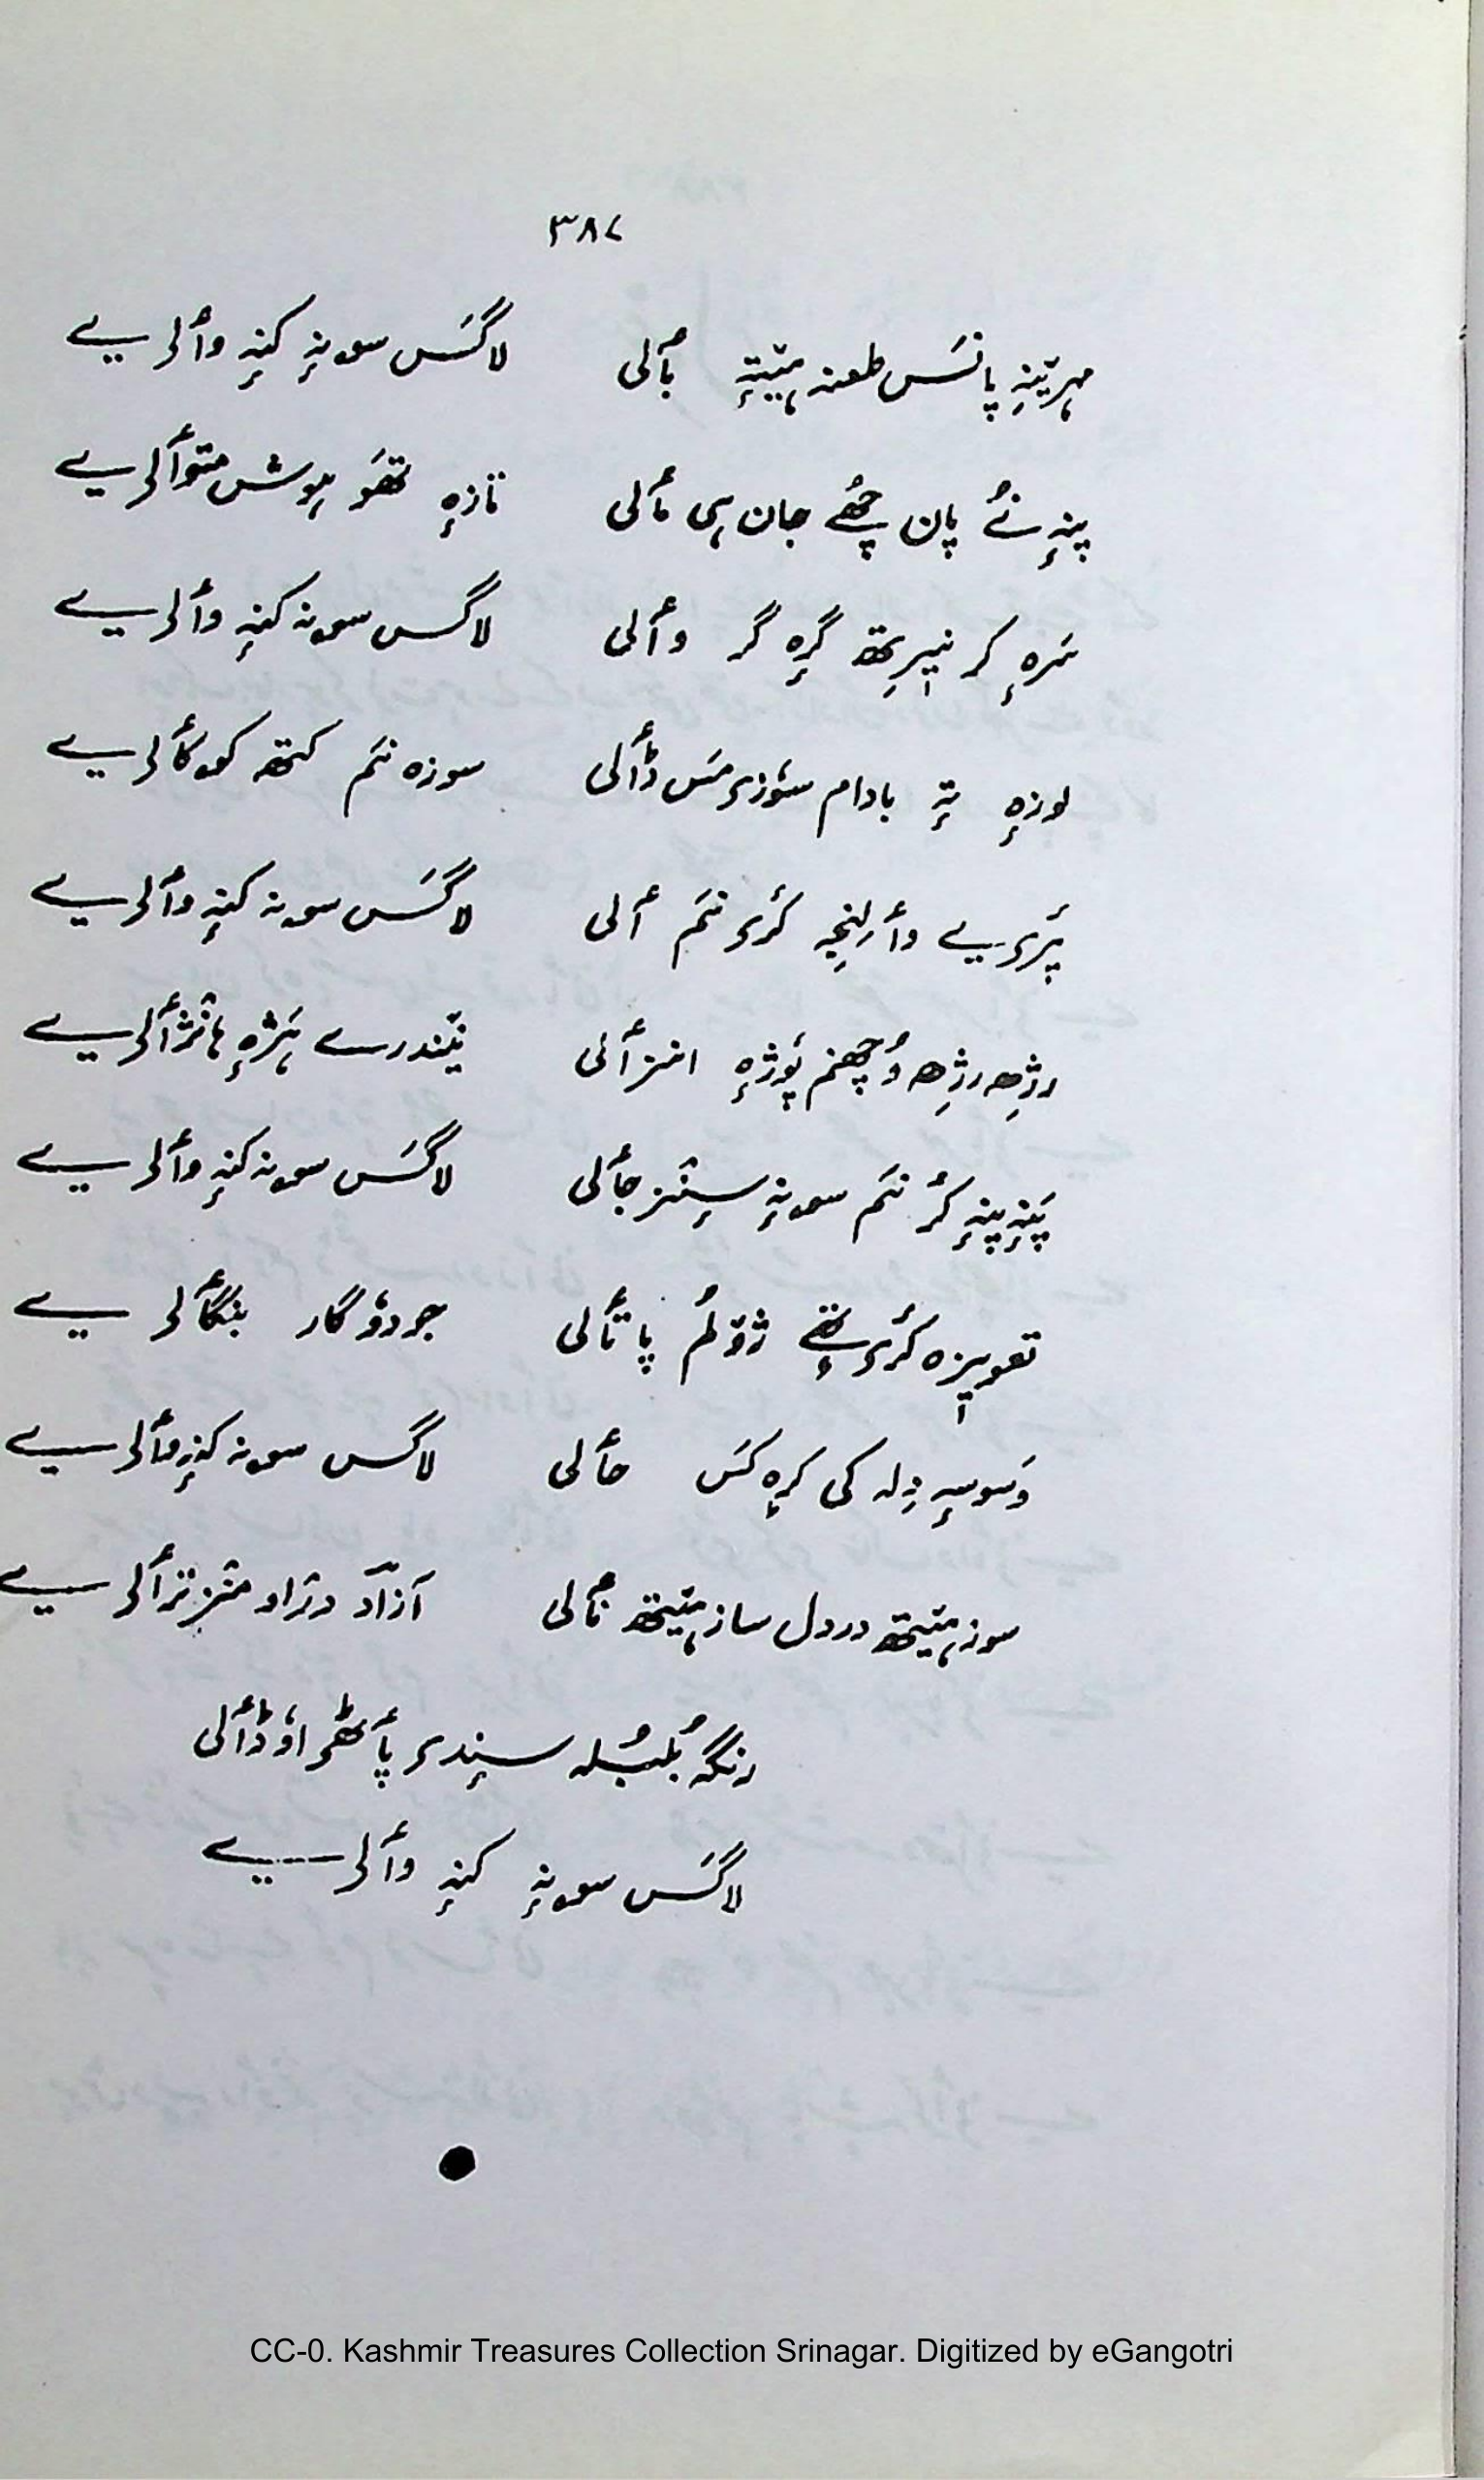 ٣٨٧
مہرِیَنہِ پانَس طعنہ ہیٚتہٕ بٲلی لاگسَ سونہٕ کنہٕ وٲلریے
پنہٕ نُے پان چھُے جان ہی مٲلی تازہٕ تھَو پوش متوٲلریے
سَرہٕ کر نیٖرِتھ گرٕہ گر وٲلی لاگس سونہ کنہٕ وٲلریے
لوزہٕ تہٕ بادام سوٗزی مَس ڈٲلی سوزہ نَم کتھ کوکٲلریے
پَری یے وٲرلِنجہِ کٔری نَم ٲلی لاگسَ سونہ کنہٕ وٲلریے
رژِھ رژِھ وُچھنم پوٗژہٕ انزٲلی نیٚندرے ہَژہٕ ہانژٲلریے
پَنہٕ پنہٕ کٔر نَم سونہٕ سٕنز جٲلی لاگسَ سونہ کنہٕ وٲلریے
تعویٖزہ کٔری تھے ژوٚلُم پاتٲلی جودوٗگار بنگٲلریے
وَسوسہٕ دِلہ کی کرٕہ کَس حٲلی لاگس سونہ کنہٕ وٲلریے
سوز ہیٚتھ دردل ساز ہیٚتھ نٲلی آزاد دراو منٛز ترٲلریے
رنگہ بُلبُلہ سٕندی پٲٹھی اوٗ ڈٲلی
لاگسَ سونہٕ کنہٕ وٲلریے
CC-0. Kashmir Treasures Collection Srinagar. Digitized by eGangotri